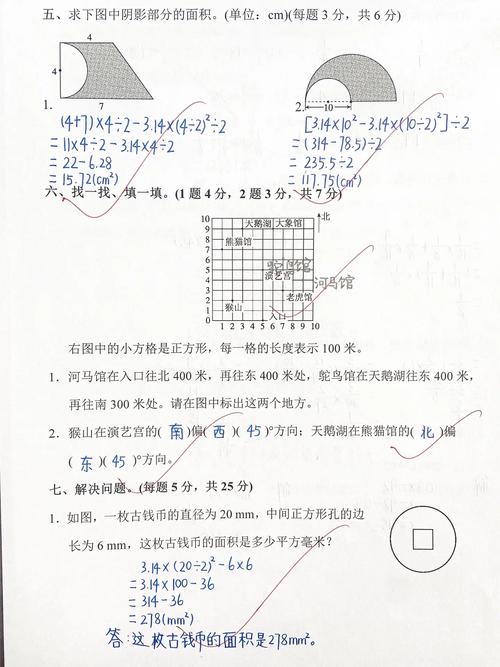 五、求下图中阴影部分的面积。(单位：cm)(每题 3 分，共 6 分)
4
4
7
10
1.
2.
(4+7)×4÷2-3.14×(4÷2)²÷2
=11×4÷2-3.14×4÷2
=22-6.28
=15.72(cm²)
[3.14×10²-3.14×(10÷2)²]÷2
=(314-78.5)÷2
=235.5÷2
=117.75(cm²)
六、找一找、填一填。(1 题 4 分，2 题 3 分，共 7 分)
北
10
9
8
7
6
5
4
3
2
1
0
天鹅湖
大象馆
熊猫馆
鸵鸟馆
演艺宫
河马馆
老虎馆
猴山
入口
1 2 3 4 5 6 7 8 9 10
右图中的小方格是正方形，每一格的长度表示 100 米。
1. 河马馆在入口往北 400 米，再往东 400 米处，鸵鸟馆在天鹅湖往东 400 米，
再往南 300 米处。请在图中标出这两个地方。
2. 猴山在演艺宫的( 南 )偏( 西 )( 45 )°方向；天鹅湖在熊猫馆的( 北 )偏
( 东 )( 45 )°方向。
七、解决问题。(每题 5 分，共 25 分)
1. 如图，一枚古钱币的直径为 20 mm，中间正方形孔的边
长为 6 mm，这枚古钱币的面积是多少平方毫米？
3.14×(20÷2)²-6×6
=3.14×100-36
=314-36
=278(mm²)
答：这枚古钱币的面积是278mm²。